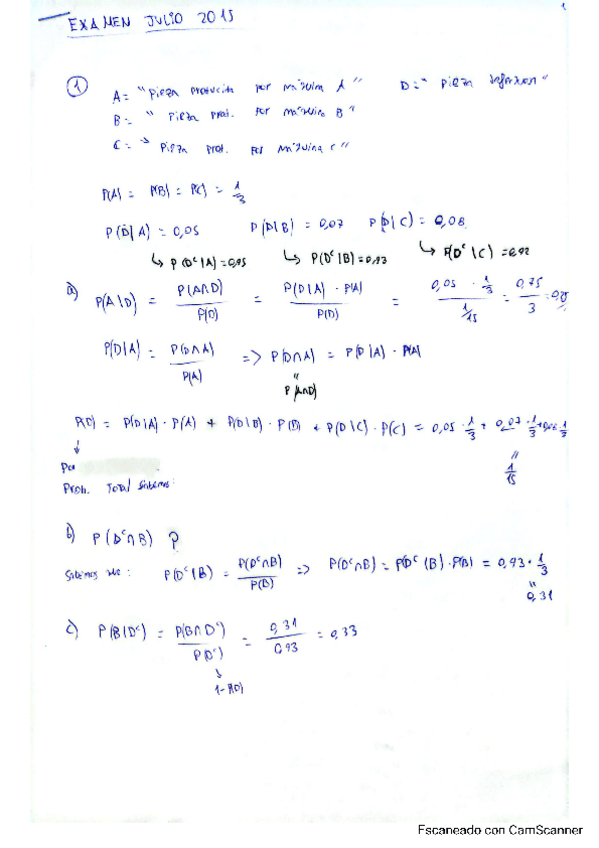 1
EXAMEN JULIO 2015
① A = "Pieza producida por máquina A" D = "Pieza defectuosa"
B = " Pieza prod. por máquina B"
C = " Pieza prod. por máquina C"
P(A) = P(B) = P(C) = 1/3
P(D|A) = 0,05 P(D|B) = 0,07 P(D|C) = 0,08
↳ P(Dᶜ|A) = 0,95 ↳ P(Dᶜ|B) = 0,93 ↳ P(Dᶜ|C) = 0,92
a) P(A|D) = P(A∩D)/P(D) = P(D|A) · P(A)/P(D) = 0,05 · 1/3 / 1/15 = 0,75/3 =
P(D|A) = P(D∩A)/P(A) => P(D∩A) = P(D|A) · P(A)
"
P(A∩D)
P(D) = P(D|A) · P(A) + P(D|B) · P(B) + P(D|C) · P(C) = 0,05 · 1/3 + 0,07 · 1/3 + 0,08 · 1/3
↓ "
Por 1/15
Prob. Total sabemos:
b) P(Dᶜ∩B) ?
Sabemos que: P(Dᶜ|B) = P(Dᶜ∩B)/P(B) => P(Dᶜ∩B) = P(Dᶜ|B) · P(B) = 0,93 · 1/3
"
0,31
c) P(B|Dᶜ) = P(B∩Dᶜ)/P(Dᶜ) = 0,31/0,93 = 0,33
↓
1-P(D)
Escaneado con CamScanner